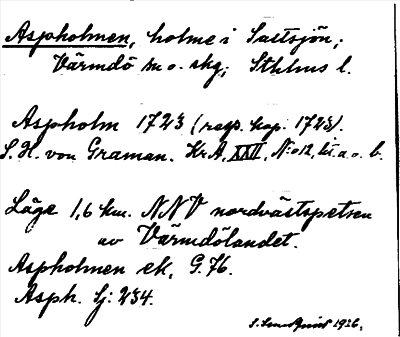 Aspholmen, holme i Saltsjön;
Värmdö sn o. skg; Sthlms l.
Aspholm 1723 (resp. kop. 1723).
S. H. von Graman. KrA, XXII, N:o 12, lit. a. o. b.
Läge 1,6 km. NNV nordvästspetsen
av Värmdölandet.
Aspholmen ek. G. 76.
Asph. Sj: 234.
1926.